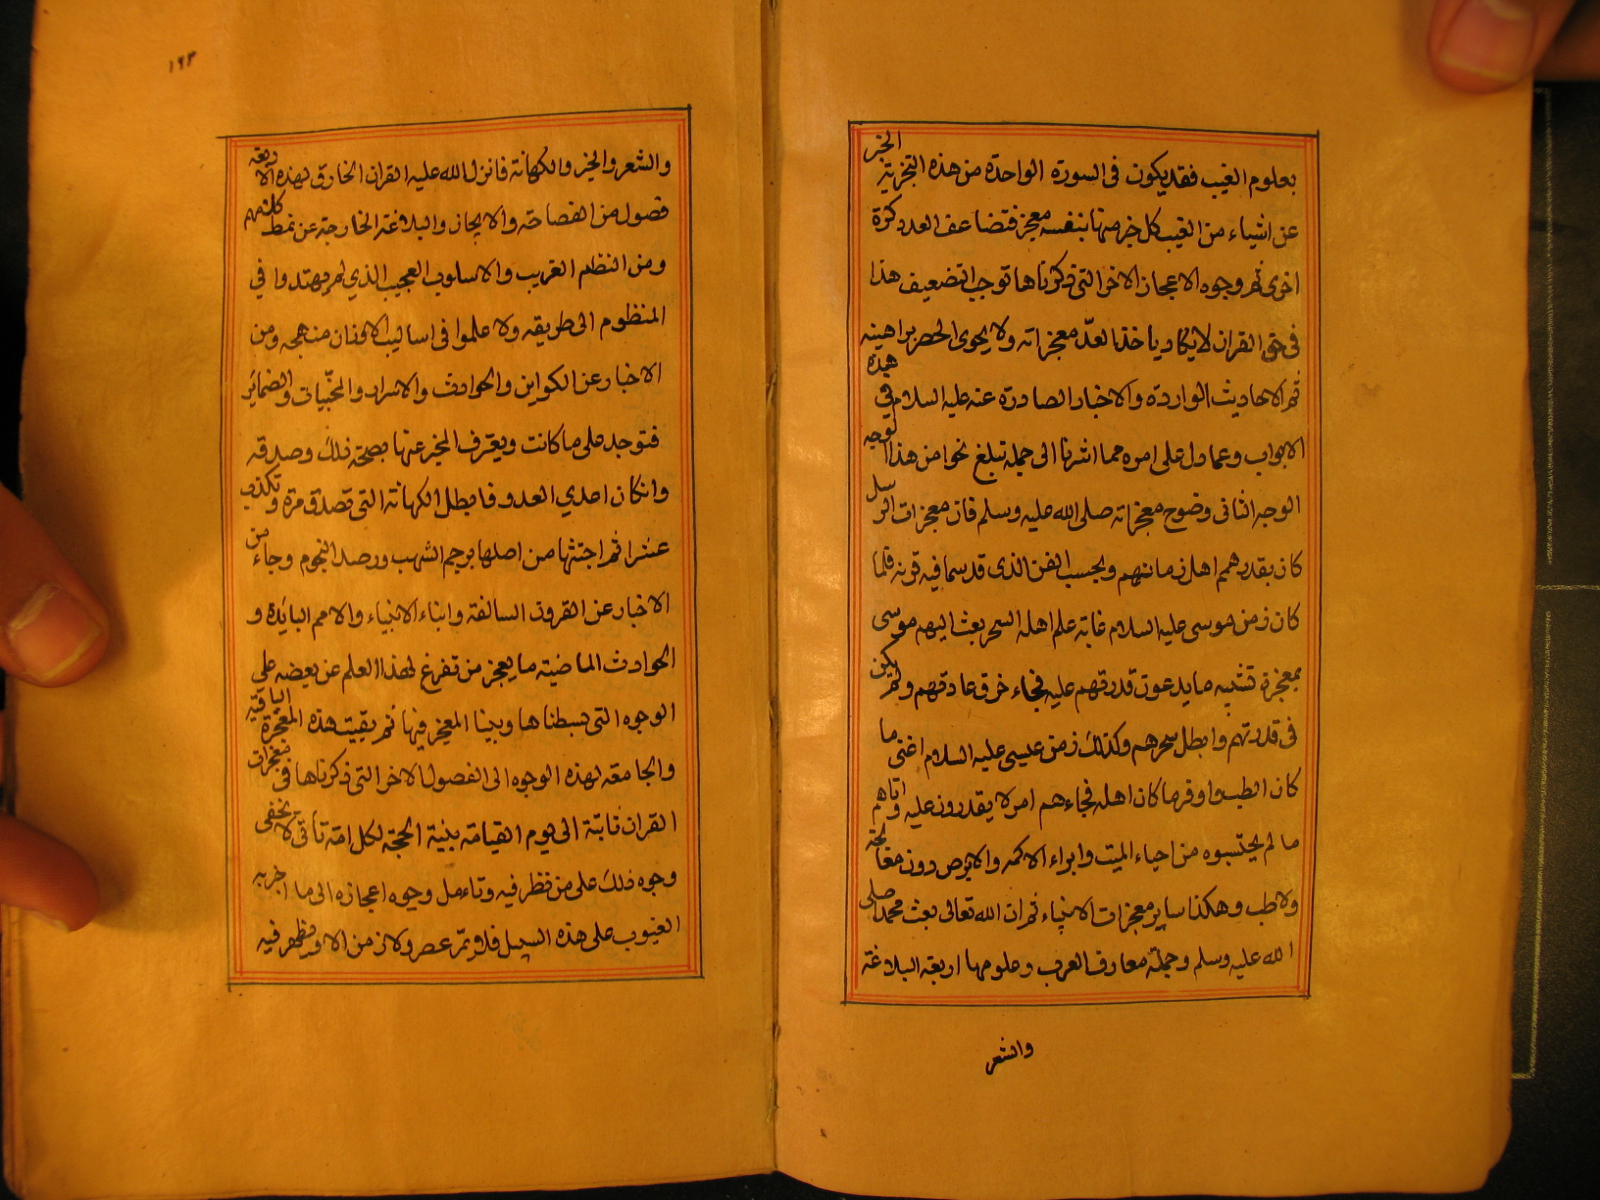 بعلوم الغيب فقد يكون فى السورة الواحدة من هذه التجزية الخبر
عن اشياء من الغيب كل خبر منها بنفسه معجز فتضاعف العدد كرة
اخرى ثم وجوه الاعجاز الاخر التى ذكرناها توجب التضعيف هذا
فى حق القران لا يكاد ياخذ العدّ معجزاته ولا يحوى الحصر براهينه
ثم الاحاديث الواردة والاخبار الصادرة عنه عليه السلام فى هذه
الابواب وعما دل على امره مما اشرنا الى جمله تبلغ نحوا من هذا الوجه
الوجه الثانى وضوح معجزاته صلى الله عليه وسلم فان معجزات الرسل
كان بقدر همم اهل زمانهم وبحسب الفن الذى قد سما فيه قرنه فلما
كان زمن موسى عليه السلام غاية علم اهله السحر بعث اليهم موسى
بمعجزة تشبه ما يدعون قدرتهم عليه فجاءهم خرق عادتهم ولم يكن
فى قدرتهم وابطل سحرهم وكذلك زمن عيسى عليه السلام اغنى ما
كان الطب واوفر ما كان اهله فجاءهم امر لا يقدرون عليه واتاهم
ما لم يحتسبوه من احياء الميت وابراء الاكمه والابرص دون معالجة
ولا طب وهكذا ساير معجزات الانبياء ثم ان الله تعالى بعث محمدا صلى
الله عليه وسلم وجملة معارف العرب وعلومها اربعة البلاغة
والشعر
١٩٣
والشعر والخبر والكهانة فانزل الله عليه القران الخارق لهذه الاربعة
فصول من الفصاحة والايجاز والبلاغة الخارجة عن نمط كلامهم
ومن النظم الغريب والاسلوب العجيب الذي لم يهتدوا في
المنظوم الى طريقه ولا علموا فى اساليب الاوزان منهجه ومن
الاخبار عن الكواين والحوادث والاسرار والمخبيات والضمائر
فتوجد على ما كانت ويعترف المخبر عنها بصحة ذلك وصدقه
وان كان اعدي العدو فابطل الكهانة التى تصدق مرة وتكذب
عشرا ثم اجتثها من اصلها برجم الشهب ورصد النجوم وجاء من
الاخبار عن القرون السالفة وانباء الانبياء والامم البائدة و
الحوادث الماضية ما يعجز من تفرغ لهذا العلم عن بعضه على
الوجوه التى بسطناها وبينا المعجز فيها ثم بقيت هذه المعجزة الباقية
والجامعة لهذه الوجوه الى الفصول الاخر التى ذكرناها فى معجزات
القران ثابتة الى يوم القيامة بنية الحجة لكل امة تأتى لا يخفى
وجوه ذلك على من نظر فيه وتاءمل وجوه اعجازه الى ما اخبر به
الغيوب على هذه السبيل فلا يمرّ عصر ولا زمن الا ويظهر فيه